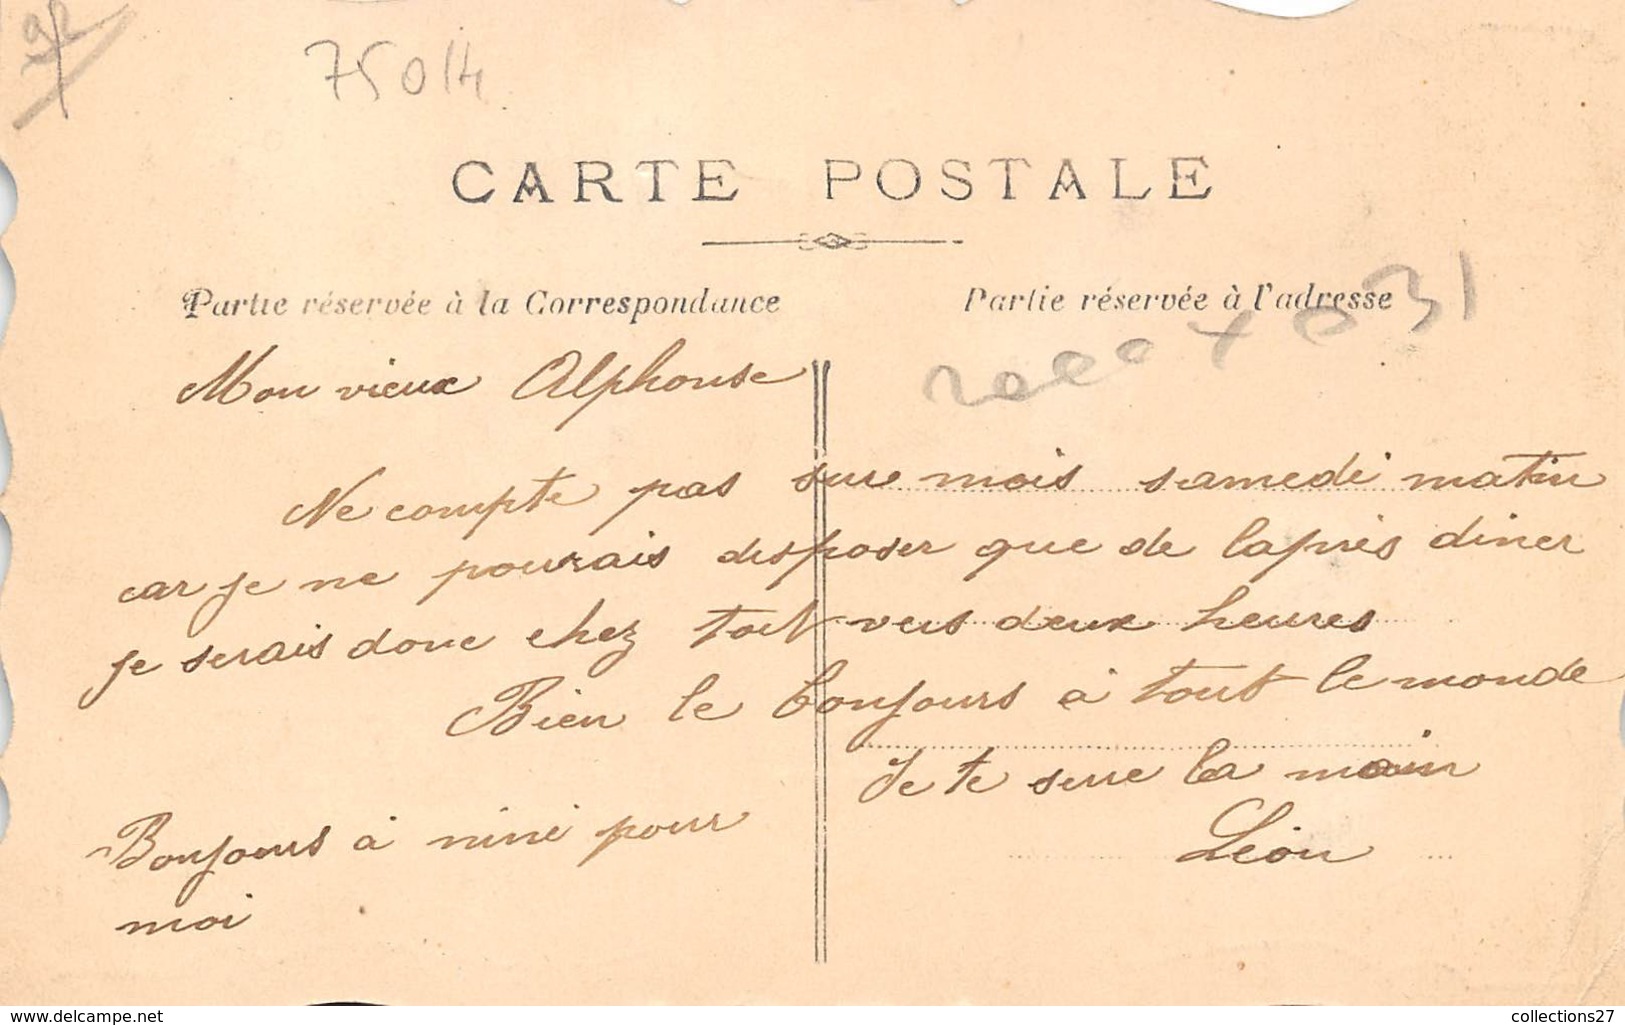 75014
CARTE POSTALE
Partie réservée à la Correspondance
Partie réservée à l'adresse
Mon vieux Alphonse
Ne compte pas sur mois samedi matin
car je ne pourais disposer que de laprès diner
je serais donc chez toit vers deux heures
Bien le bonjours à tout le monde
Je te serre la main
Léon
Bonjours à nini pour
moi
www.delcampe.net
collections27